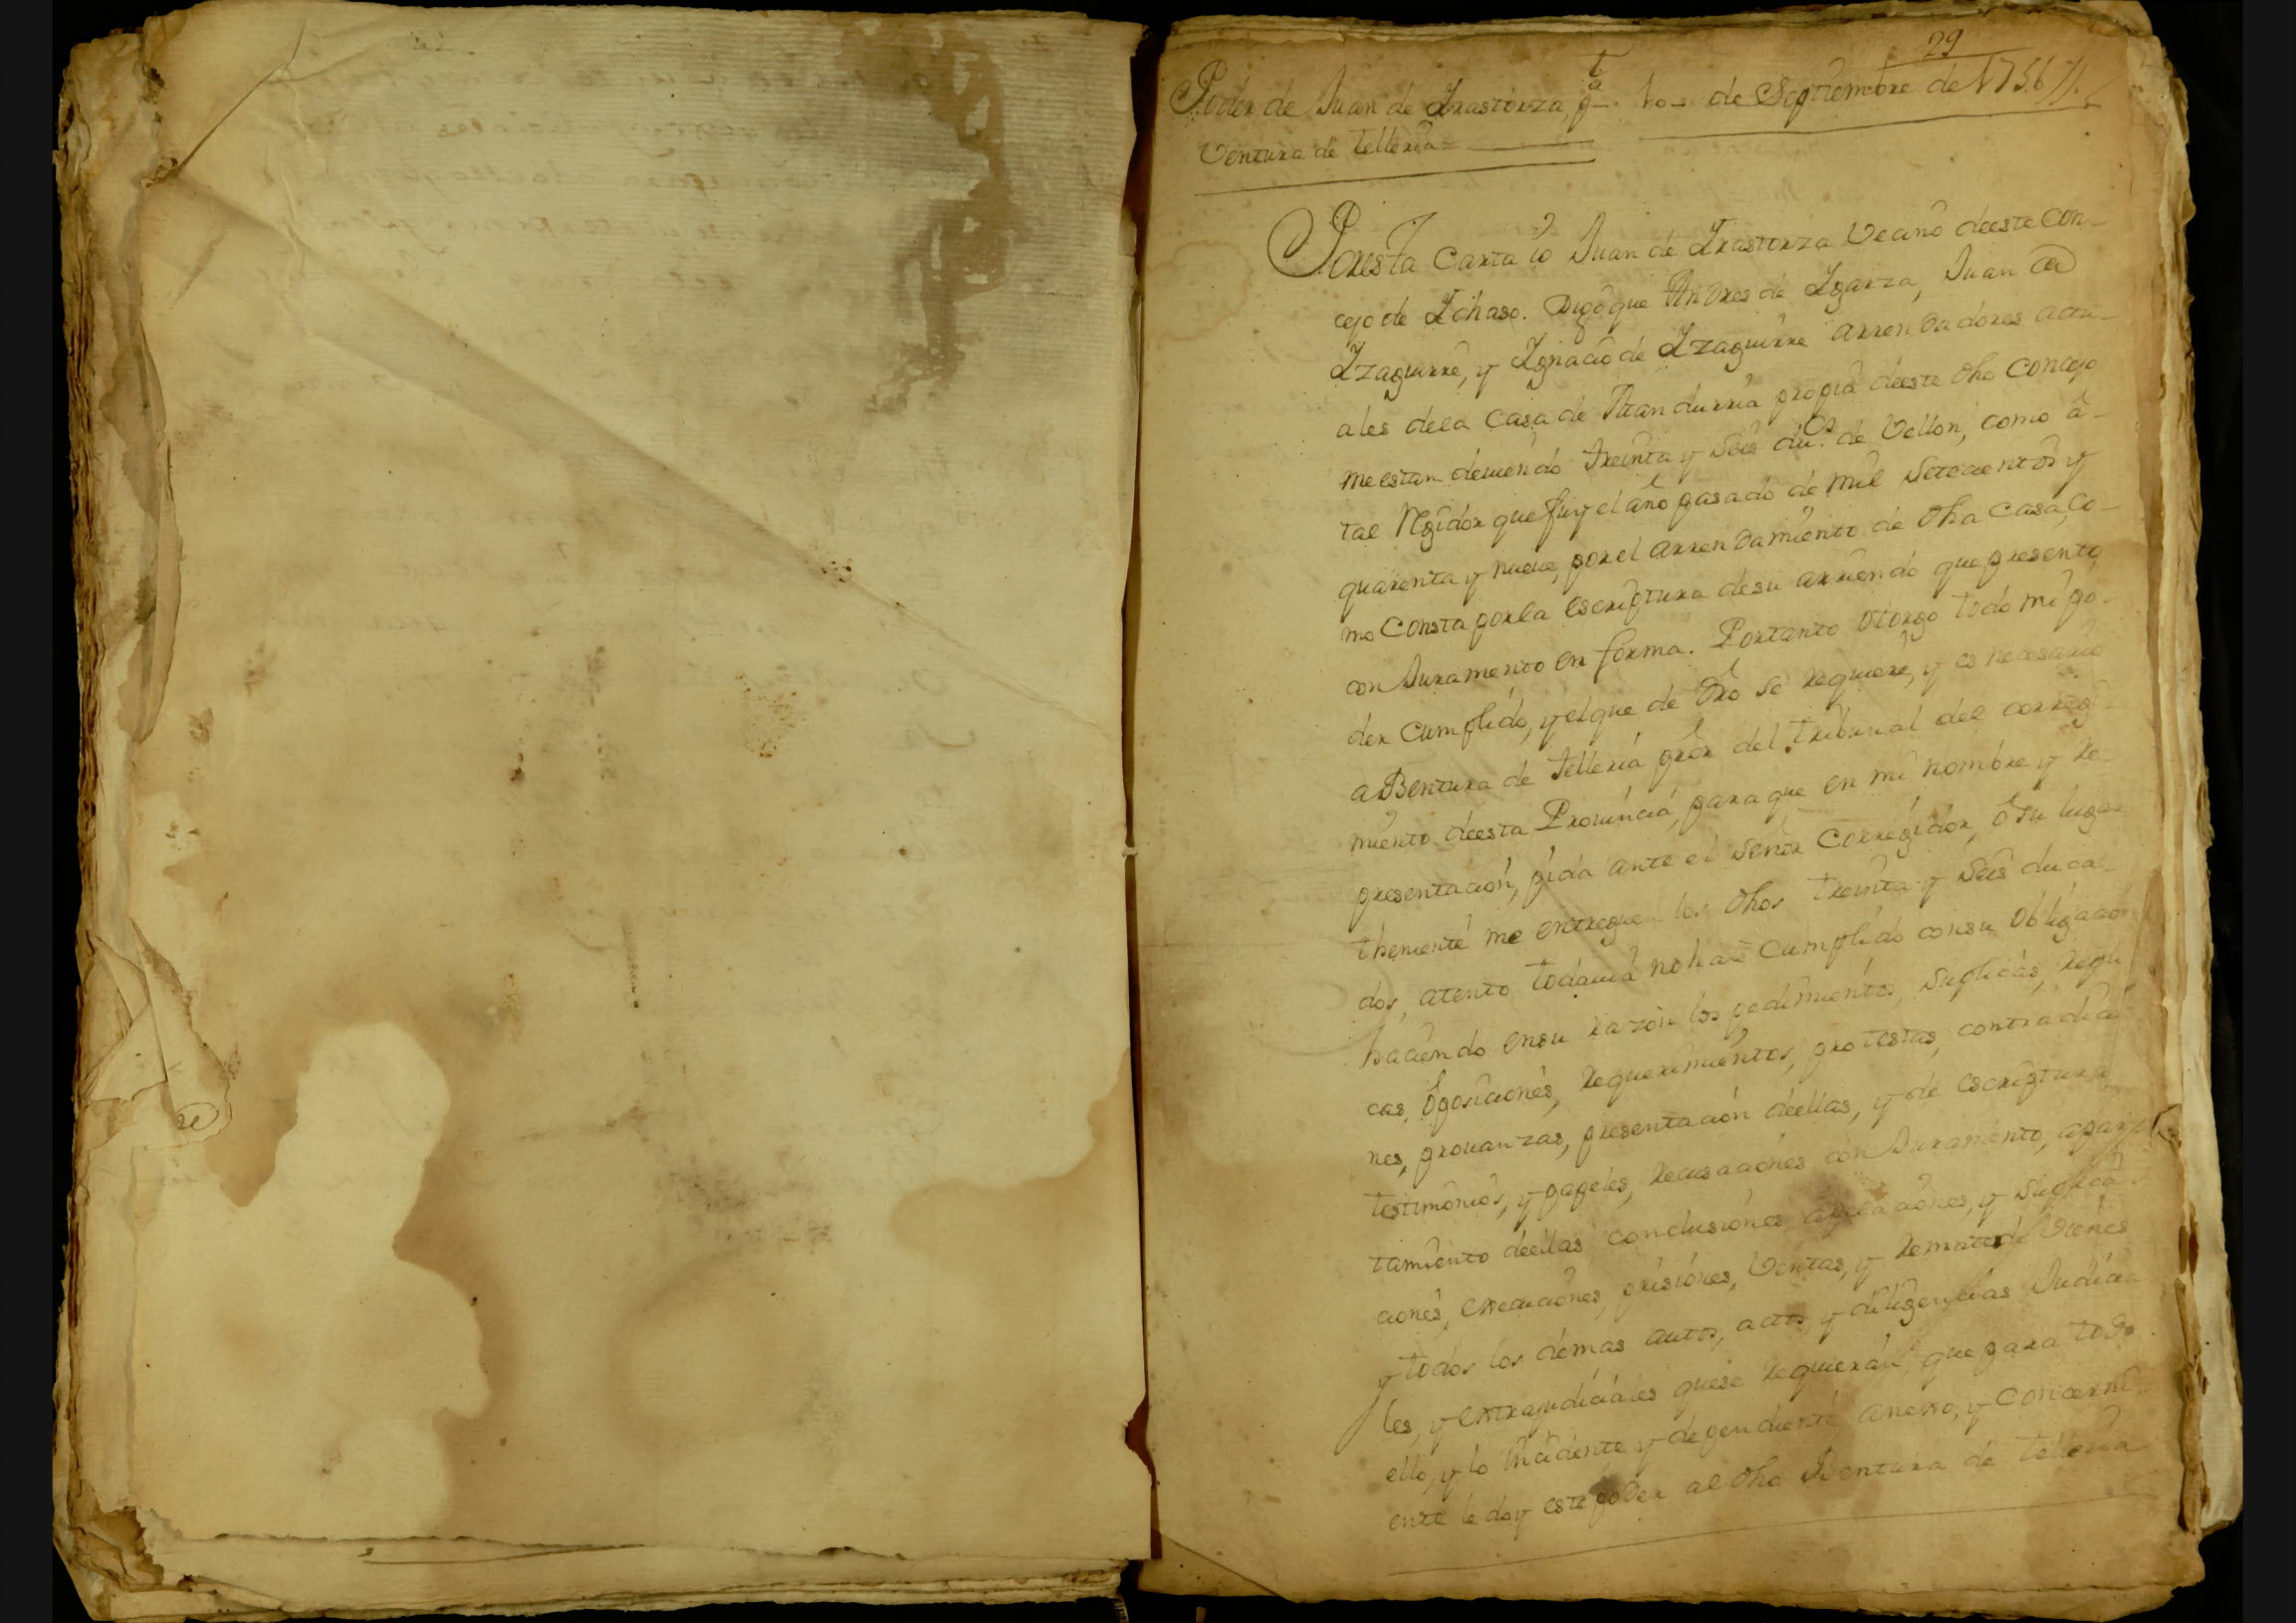 29
Poder de Juan de Irastorza pa. 10 de Septiembre de 1756
Ventura de Telleria
Por esta Carta io Juan de Irastorza Vecino deeste Con-
cejo de Ichaso. Digo que Andres de Igarza, Juan de
Izaguirre, y Ignacio de Izaguirre arrendadores actu-
ales dela Casa de Mandurria propia deeste dho Concejo
me estan deuiendo treinta y seis dus. de Vellon, como a-
tal Rejidor que fuy el año pasado de mil setecientos y
quarenta y nueue, por el arrendamiento de dha Casa, Co-
mo Consta por la escriptura desu arriendo que presento
con Juramento en forma. Portanto otorgo todo mi po-
der Cumplido, y el que de dro se requiere, y es necesario
a Bentura de Telleria pror del tribunal del corregi-
miento deesta Prouincia, para que en mi nombre y re-
presentacion, pida ante el señor Corregidor, ò su lugar
theniente me entreguen los dhos treinta y seis duca-
dos, atento todauia no han Cumplido consu obligacion
haciendo ensu razòn los pedimientos, suplicas, repli
cas, oposiciones, requerimientos, protestas, contradicio
nes, prouanzas, presentacion deellas, y de escriptura,
testimonios, y papeles, recusaciones con Juramento, apar
tamiento deellas conclusiones, apelaciones, y suplica
ciones, execuciones, prisiones, Ventas, y remates de Vienes
y todos los demas autos, actos y diligencias Judicia
les, y extrajudiciales quese requieran, que para todo
ello, y lo incidente y dependiente anexo, y Concerni-
ente le doy este poder al dho Bentura de Telleria